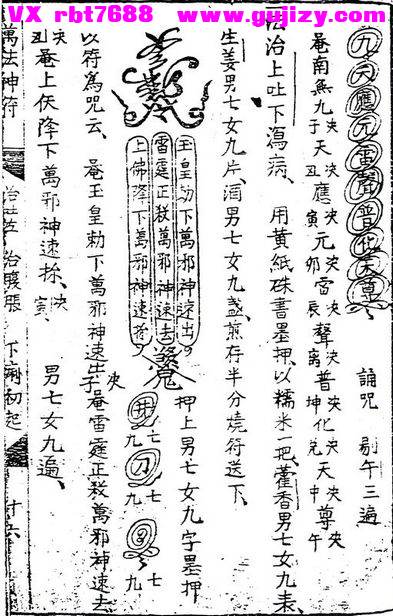 VX rbt7688 www.gujizy.com
九天應元雷聲普化天尊 誦咒 剔午三遍
唵南無九決子天決丑應決寅元決卯雷決辰聲決离普決坤化決兌天決中尊決午
一法治上吐下瀉病、用黃紙硃書墨押、以糯米一把、藿香男七女九耒、
生姜男七女九片、酒男七女九盞、煎存半分燒符送下、
玉皇勅下萬邪神速出
雷霆正救萬邪神速去
上佛降下萬邪神速捺
押上男七女九字墨押
七九
七九
七九
以符為咒云、唵玉皇勅下萬邪神速出決子唵雷霆正救萬邪神速去
決丑唵上佛降下萬邪神速捺、決寅 男七女九遍、
萬法神符 治腹脹 下痢初起 廿六